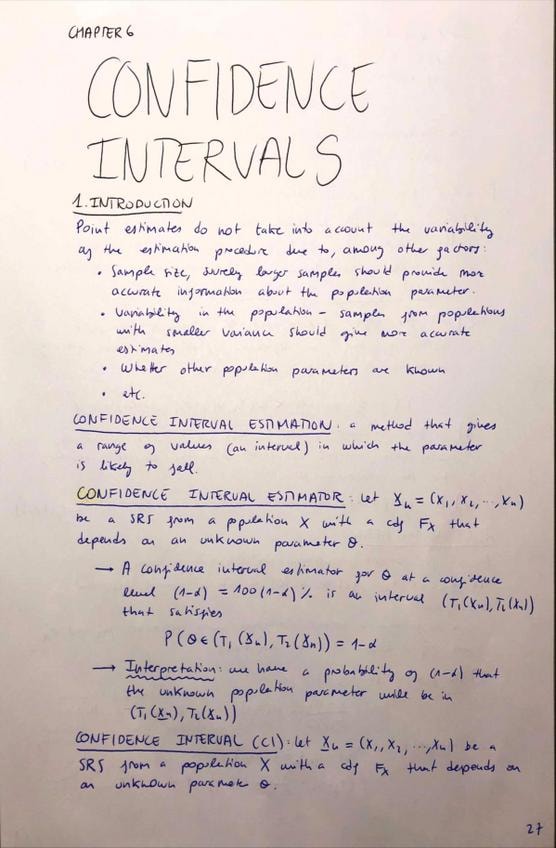 CHAPTER 6
CONFIDENCE
INTERVALS
1. INTRODUCTION
Point estimates do not take into account the variability
of the estimation procedure due to, among other factors:
• Sample size, surely larger samples should provide more
accurate information about the population parameter.
• Variability in the population - samples from populations
with smaller variance should give more accurate
estimates
• Whether other population parameters are known
• etc.
CONFIDENCE INTERVAL ESTIMATION: a method that gives
a range of values (an interval) in which the parameter
is likely to fall.
CONFIDENCE INTERVAL ESTIMATOR: let X̲n = (X1, X2, ..., Xn)
be a SRS from a population X with a cdf Fx that
depends on an unknown parameter θ.
→ A confidence interval estimator for θ at a confidence
level (1-α) = 100(1-α)% is an interval (T1(X̲n), T2(X̲n))
that satisfies
P(θ∈(T1(X̲n), T2(X̲n)) = 1-α
→ Interpretation: we have a probability of (1-α) that
the unknown population parameter will be in
(T1(X̲n), T2(X̲n))
CONFIDENCE INTERVAL (CI): let X̲n = (X1, X2, ..., Xn) be a
SRS from a population X with a cdf Fx that depends on
an unknown parameter θ.
27